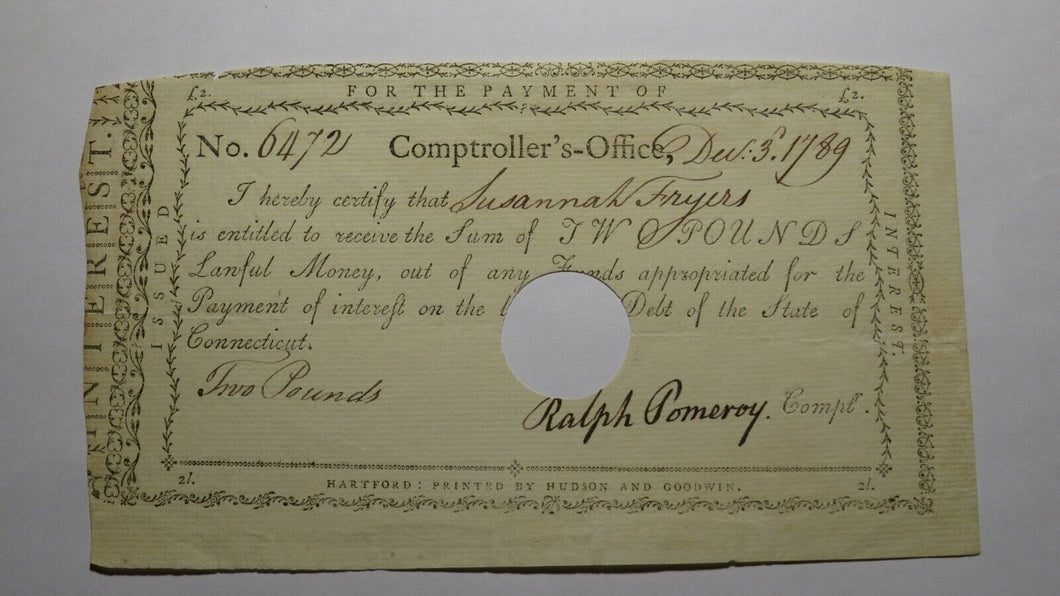 £2. FOR THE PAYMENT OF £2.
No. 6472 Comptroller's-Office, Dec. 3d. 1789
I hereby certify that Susannah Fryers
is entitled to receive the Sum of TWO POUNDS
Lawful Money, out of any Funds appropriated for the
Payment of interest on the Debt of the State of
Connecticut.
Two Pounds
Ralph Pomeroy. Comptr.
2l. HARTFORD: PRINTED BY HUDSON AND GOODWIN. 2l.
ISSUED
INTEREST.
INTEREST.